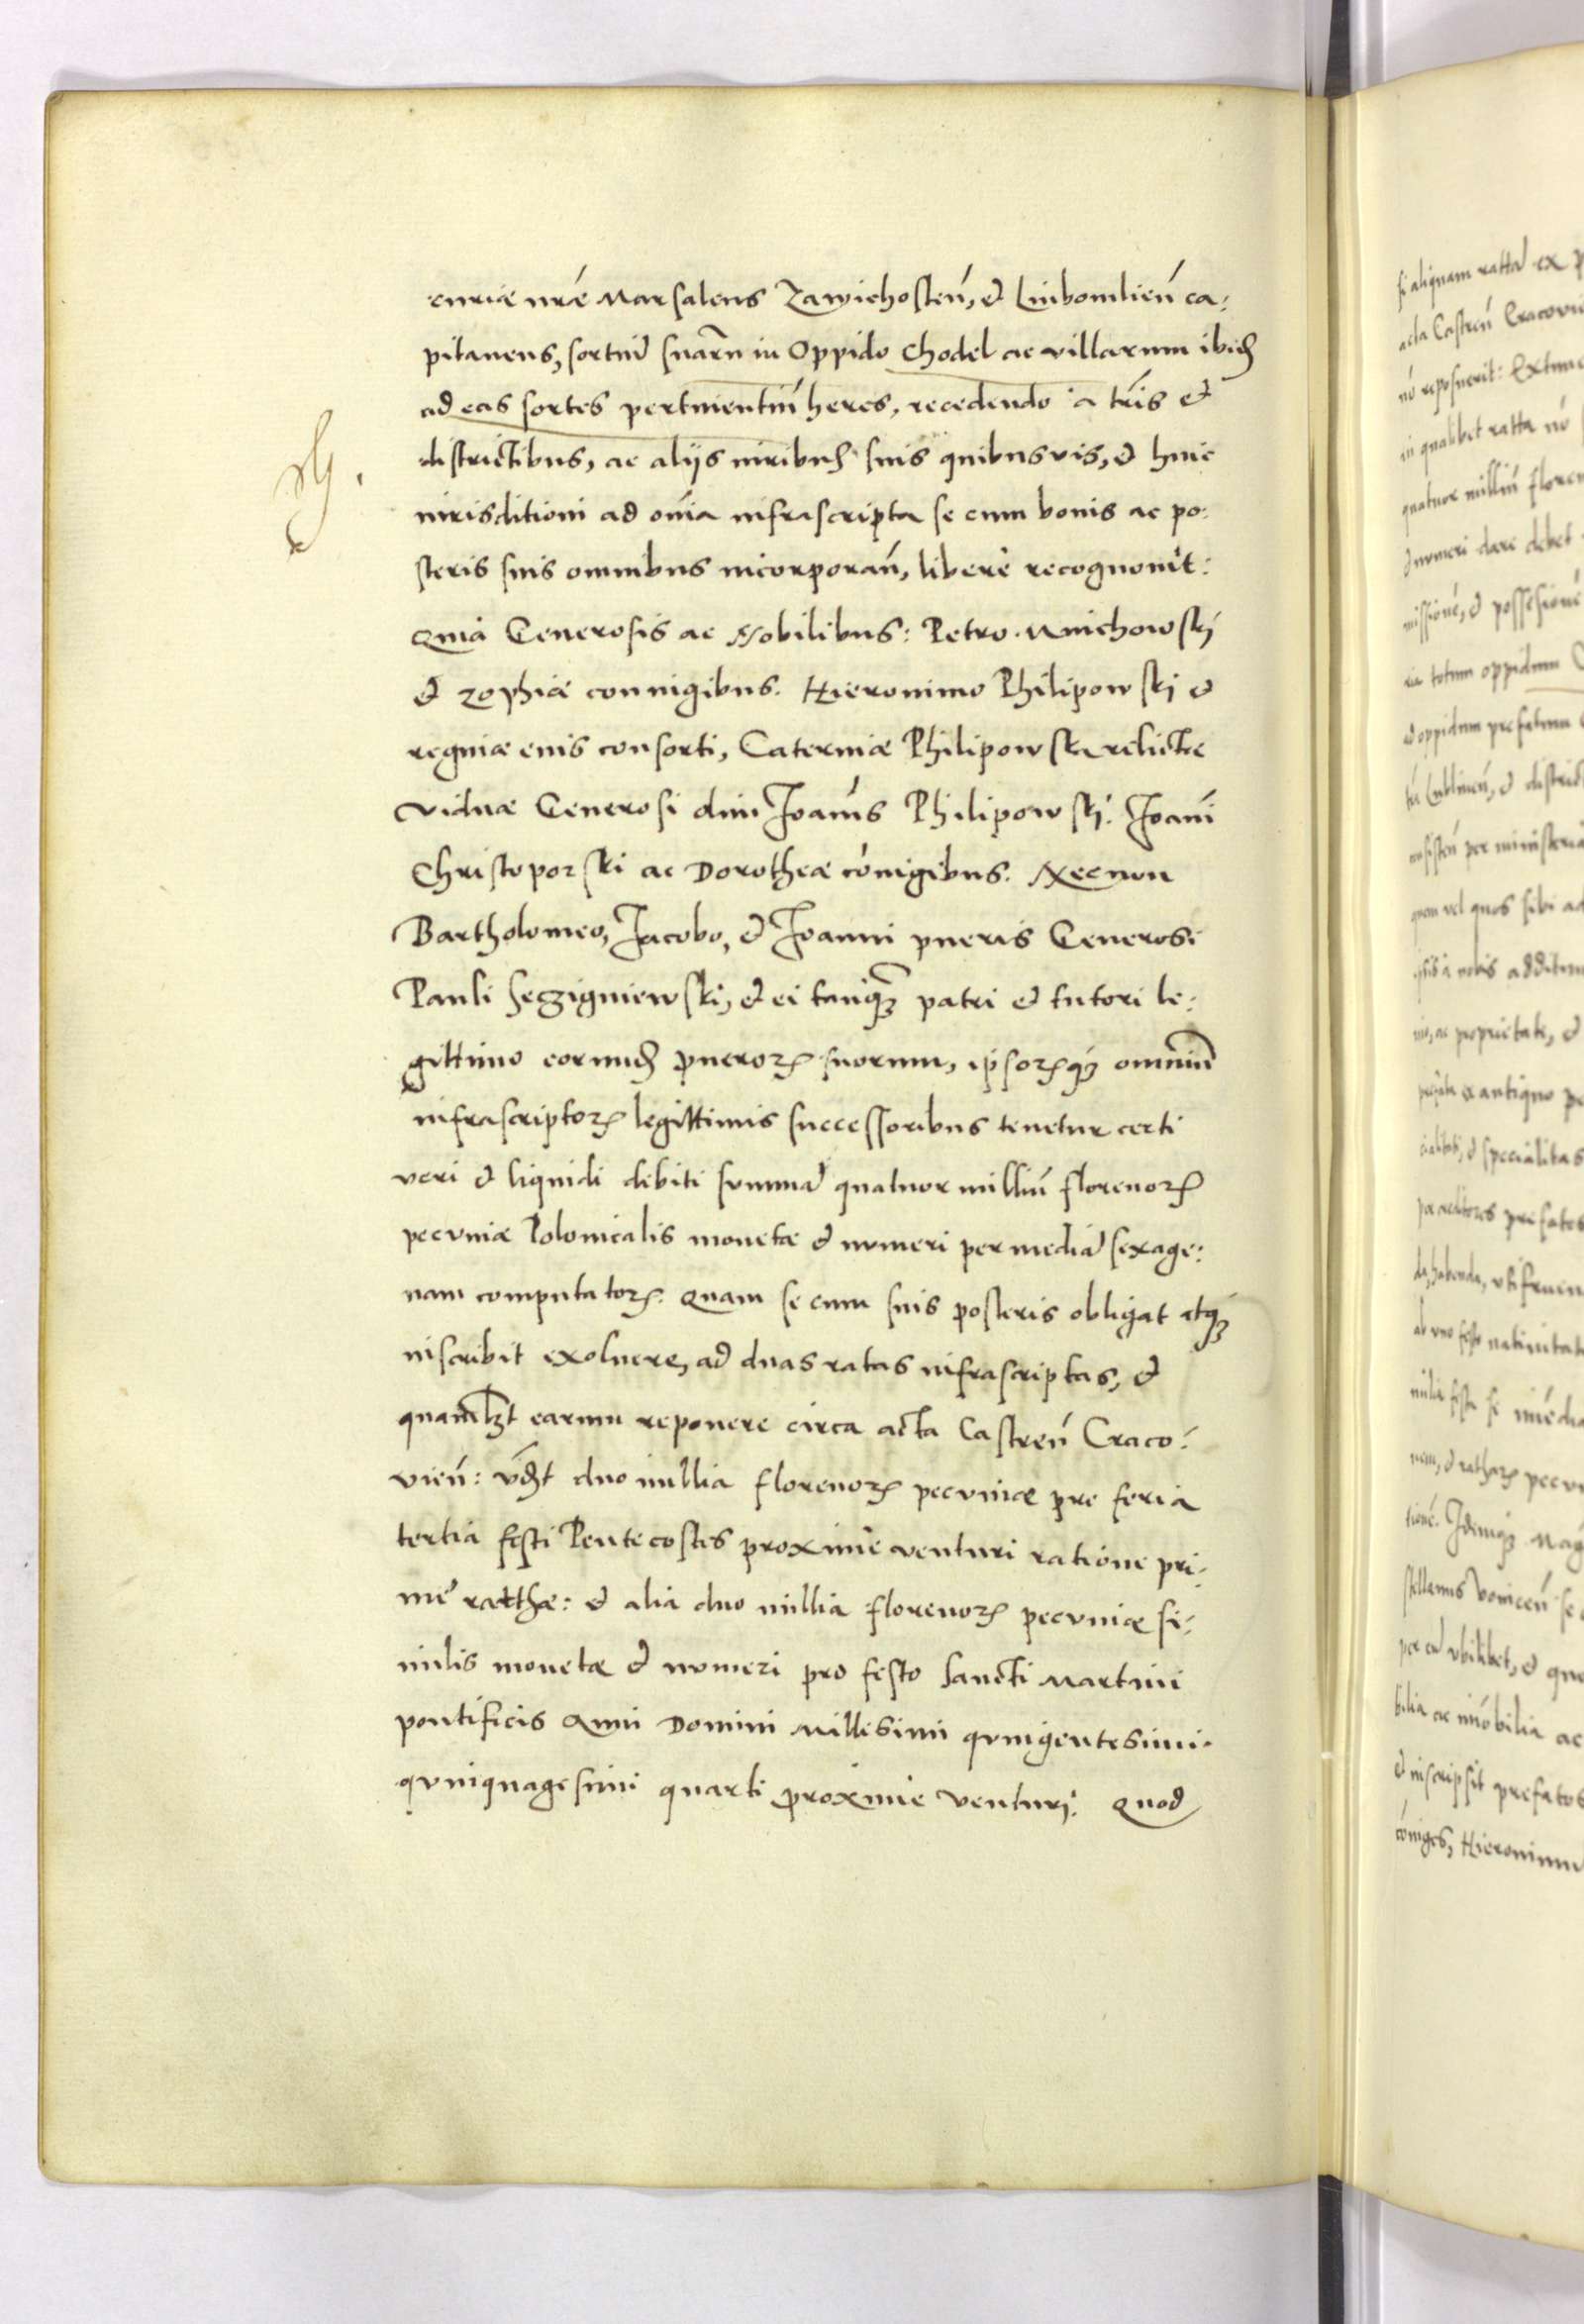 curiæ nræ Marsaleus Zawichosteń, et Luboml̃ień ca:
pitaneus, sortiũ suarũ in Oppido Chodel ac villarum ibidẽ
ad eas sortes pertinentiũ heres, recedendo à tris et
districtibus, ac alijs iuribus suis quibusvis, et huic
iurisditioni ad oĩa infrascripta se cum bonis ac po:
steris suis omnibus incorporań, liberè recognouit:
Quia Generosis ac Nobilibus: Petro Mnichowskj
et Zophiæ coniugibus. Hieronimo Philipowskj et
reginæ eius consorti, Caterinæ Philipowska relictæ
viduæ Generosi olim Joańis Philipowskj. Joańi
Christoporski ac Dorotheæ cõiugibus. Necnon
Bartholomeo, Jacobo, et Joanni pueris Generosi
Pauli Seczigniewski, et ei tanq̃ȝ patri et tutori le:
gittimo eorundẽ pueroꝝ suorum, ipsoꝝqȝ omniũ
infrascriptoꝝ legittimis successoribus tenetur certi
veri et liquidi debiti summã quatuor milliũ florenoꝝ
pecuniæ Polonicalis monetæ et numeri per mediã sexage:
nam computatoꝝ. Quam se cum suis posteris obligat atqȝ
inscribit exoluere, ad duas ratas infrascriptas, et
quamlȝt earum reponere circa acta Castreń Craco:
uień: vȝt duo millia florenoꝝ pecuniæ pro feria
tertia festi Pentecostes proximè venturi ratione pri:
mæ ratthæ: et alia duo millia florenoꝝ pecuniæ si:
milis monetæ et numeri pro festo Sancti Martini
pontificis Anni Domini Millesimi quingentesimi
quinquagesimi quarti proximè venturj. Quod
si aliquam rattã ex
acta Castreń Cracouie
nõ reposuerit: Extunc
in qualibet ratta nõ
quatuor milliũ floren
et numeri dare debet
missionẽ, et possessionẽ
totum oppidum
oppidum prefatum
Lublineń, et district
per ministeria
quem vel quos sibi ad
à nobis additum
ac proprietate, et
ex antiquo
et specialitas
prefatos
habenda, utifruen
ab uno festo natiuitat
festa se
pecun
tionẽ. Idemqȝ Mag
stellanus Voiniceń se
ubilibet, et que
bilia ac imõbilia ac
et inscripsit prefatos
cõiuges, Hieronimum